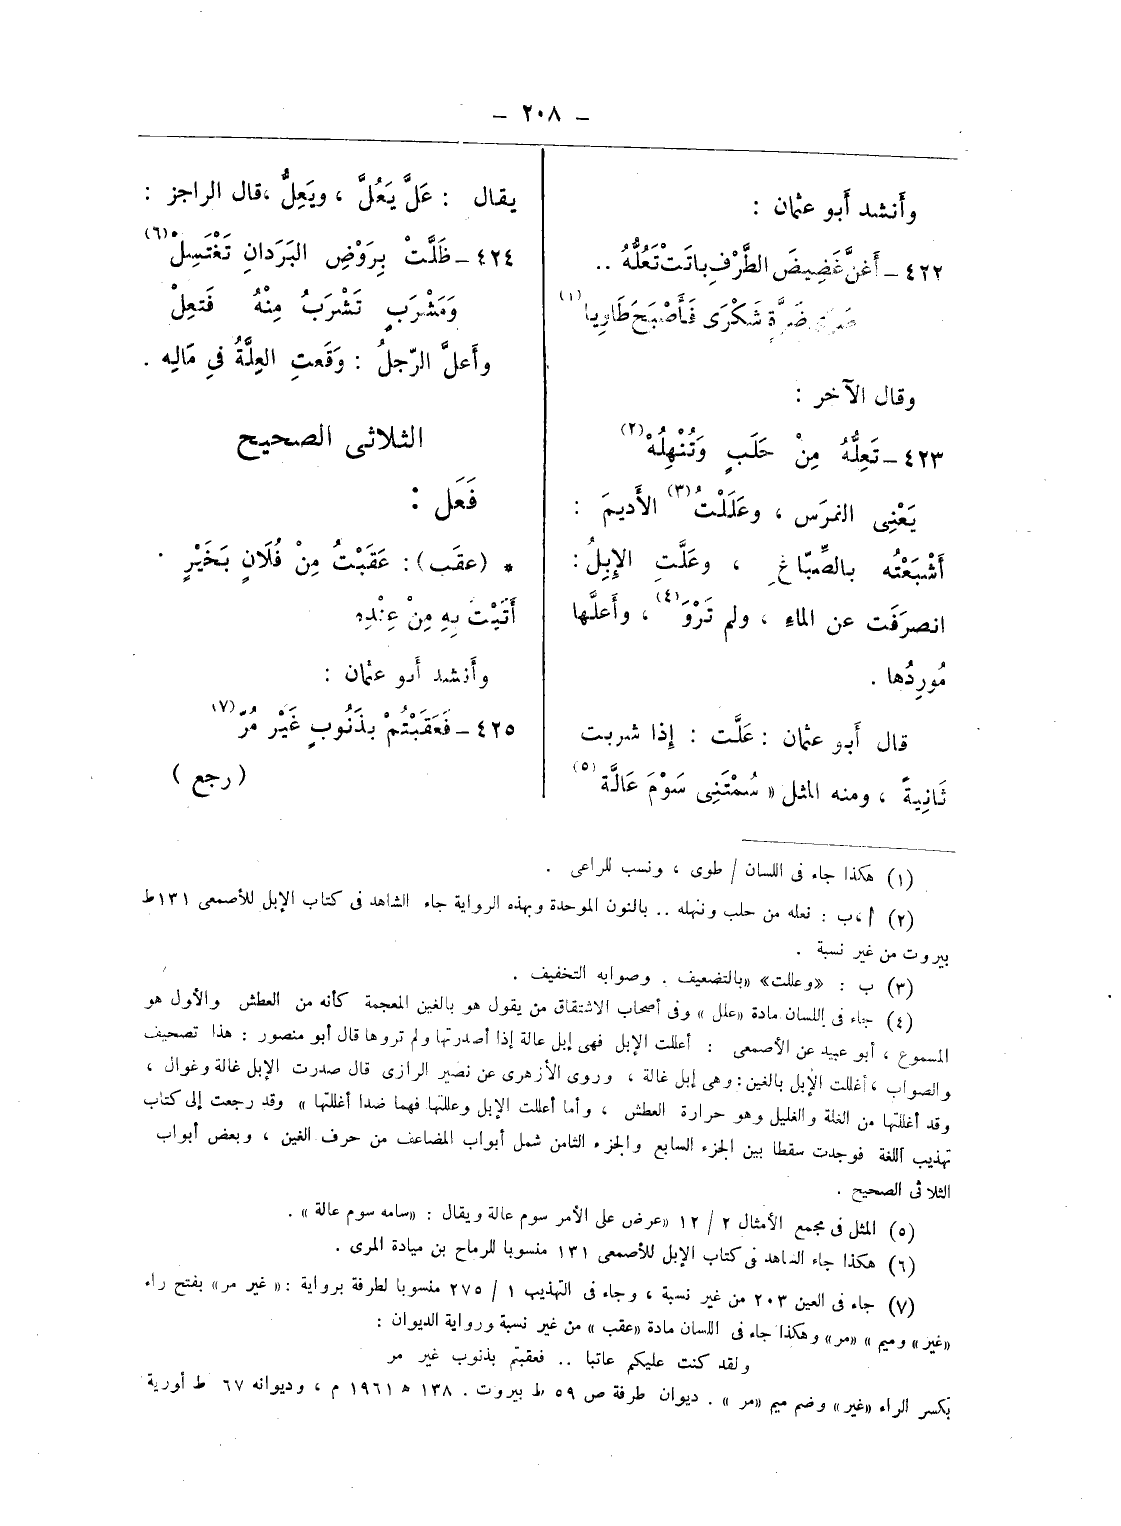 — ٢٠٨ —
وأنشد أبو عثمان :
٤٢٢ – أَغنَّ غَضِيضَ الطَّرْفِ باتَتْ تَعُلُّهُ ..
ضَرَّةٍ شَكْرَى فَأَصْبَحَ طَاوِيا (١)
وقال الآخر :
٤٢٣ – تَعِلُّهُ مِنْ حَلَبٍ وَتُنْهِلُهْ (٢)
يَعْنِى النمرَس ، وعَلَلْتُ (٣) الأَديمَ :
أَشْبَعْتُه بالصِّبَّاغِ ، وعلَّتِ الإِبِلُ :
انصرَفَت عن الماءِ ، ولم تَرْوَ (٤) ، وأَعلَّها
مُورِدُها .
قال أَبو عثمان : عَلَّت : إِذا شربت
ثَانِيةً ، ومنه المثل « سُمْتَنِى سَوْمَ عَالَّة (٥)
يقال : عَلَّ يَعُلَّ ، ويَعِلُّ ، قال الراجز :
٤٢٤ – ظَلَّتْ بِرَوْضِ البَرَدانِ تَغْتَسِلْ (٦)
وَمَشْرَبٍ تَشْرَبُ مِنْهُ فَتعِلْ
وأَعلَّ الرّجلُ : وَقَعتِ العِلَّةُ فىِ مَالِه .
الثلاثى الصحيح
فَعَل :
* (عقَب) : عَقَبْتُ مِنْ فُلَانٍ بَخَيْرٍ .
أَتَيْتُ بِهِ مِنْ عِنْدِهِ
وأَنشد أَبو عثمان :
٤٢٥ – فَعَقَبْتُمْ بذَنُوبٍ غَيْر مُرّ (٧)
( رجع )
(١) هكذا جاء فى اللسان / طوى ، ونسب للراعى .
(٢) أ ، ب : نعله من حلب وننهله .. بالنون الموحدة وبهذه الرواية جاء الشاهد فى كتاب الإبل للأصمعى ١٣١ ط
بيروت من غير نسبة .
(٣) ب : «وعللت» «بالتضعيف . وصوابه التخفيف .
(٤) جاء فى اللسان مادة «علل » وفى أصحاب الاشتقاق من يقول هو بالغين المعجمة كأنه من العطش والأول هو
المسموع ، أبو عبيد عن الأصمعى : أعللت الإبل فهى إبل عالة إذا أصدرتها ولم تروها قال أبو منصور : هذا تصحيف
والصواب ، أغللت الإبل بالغين : وهى إبل غالة ، وروى الأزهرى عن نصير الرازى قال صدرت الإبل غالة وغوال ،
وقد أغللتها من الغلة والغليل وهو حرارة العطش ، وأما أعللت الإبل وعللتها فهما ضدا أغللتها » وقد رجعت إلى كتاب
تهذيب اللغة فوجدت سقطا بين الجزء السابع والجزء الثامن شمل أبواب المضاعف من حرف الغين ، وبعض أبواب
الثلاثى الصحيح .
(٥) المثل فى مجمع الأمثال ٢ / ١٢ «عرض على الأمر سوم عالة ويقال : «سامه سوم عالة » .
(٦) هكذا جاء الشاهد فى كتاب الإبل للأصمعى ١٣١ منسوبا للرماح بن ميادة المرى .
(٧) جاء فى العين ٢٠٣ من غير نسبة ، وجاء فى التهذيب ١ / ٢٧٥ منسوبا لطرفة برواية : « غير مر» بفتح راء
«غير » وميم » «مر» وهكذا جاء فى اللسان مادة «عقب » من غير نسبة ورواية الديوان :
ولقد كنت عليكم عاتبا .. فعقبتم بذنوب غير مر
بكسر الراء «غير» وضم ميم «مر » . ديوان طرفة ص ٥٩ ط بيروت . ١٣٨ ه ١٩٦١ م ، وديوانه ٦٧ ط أورية